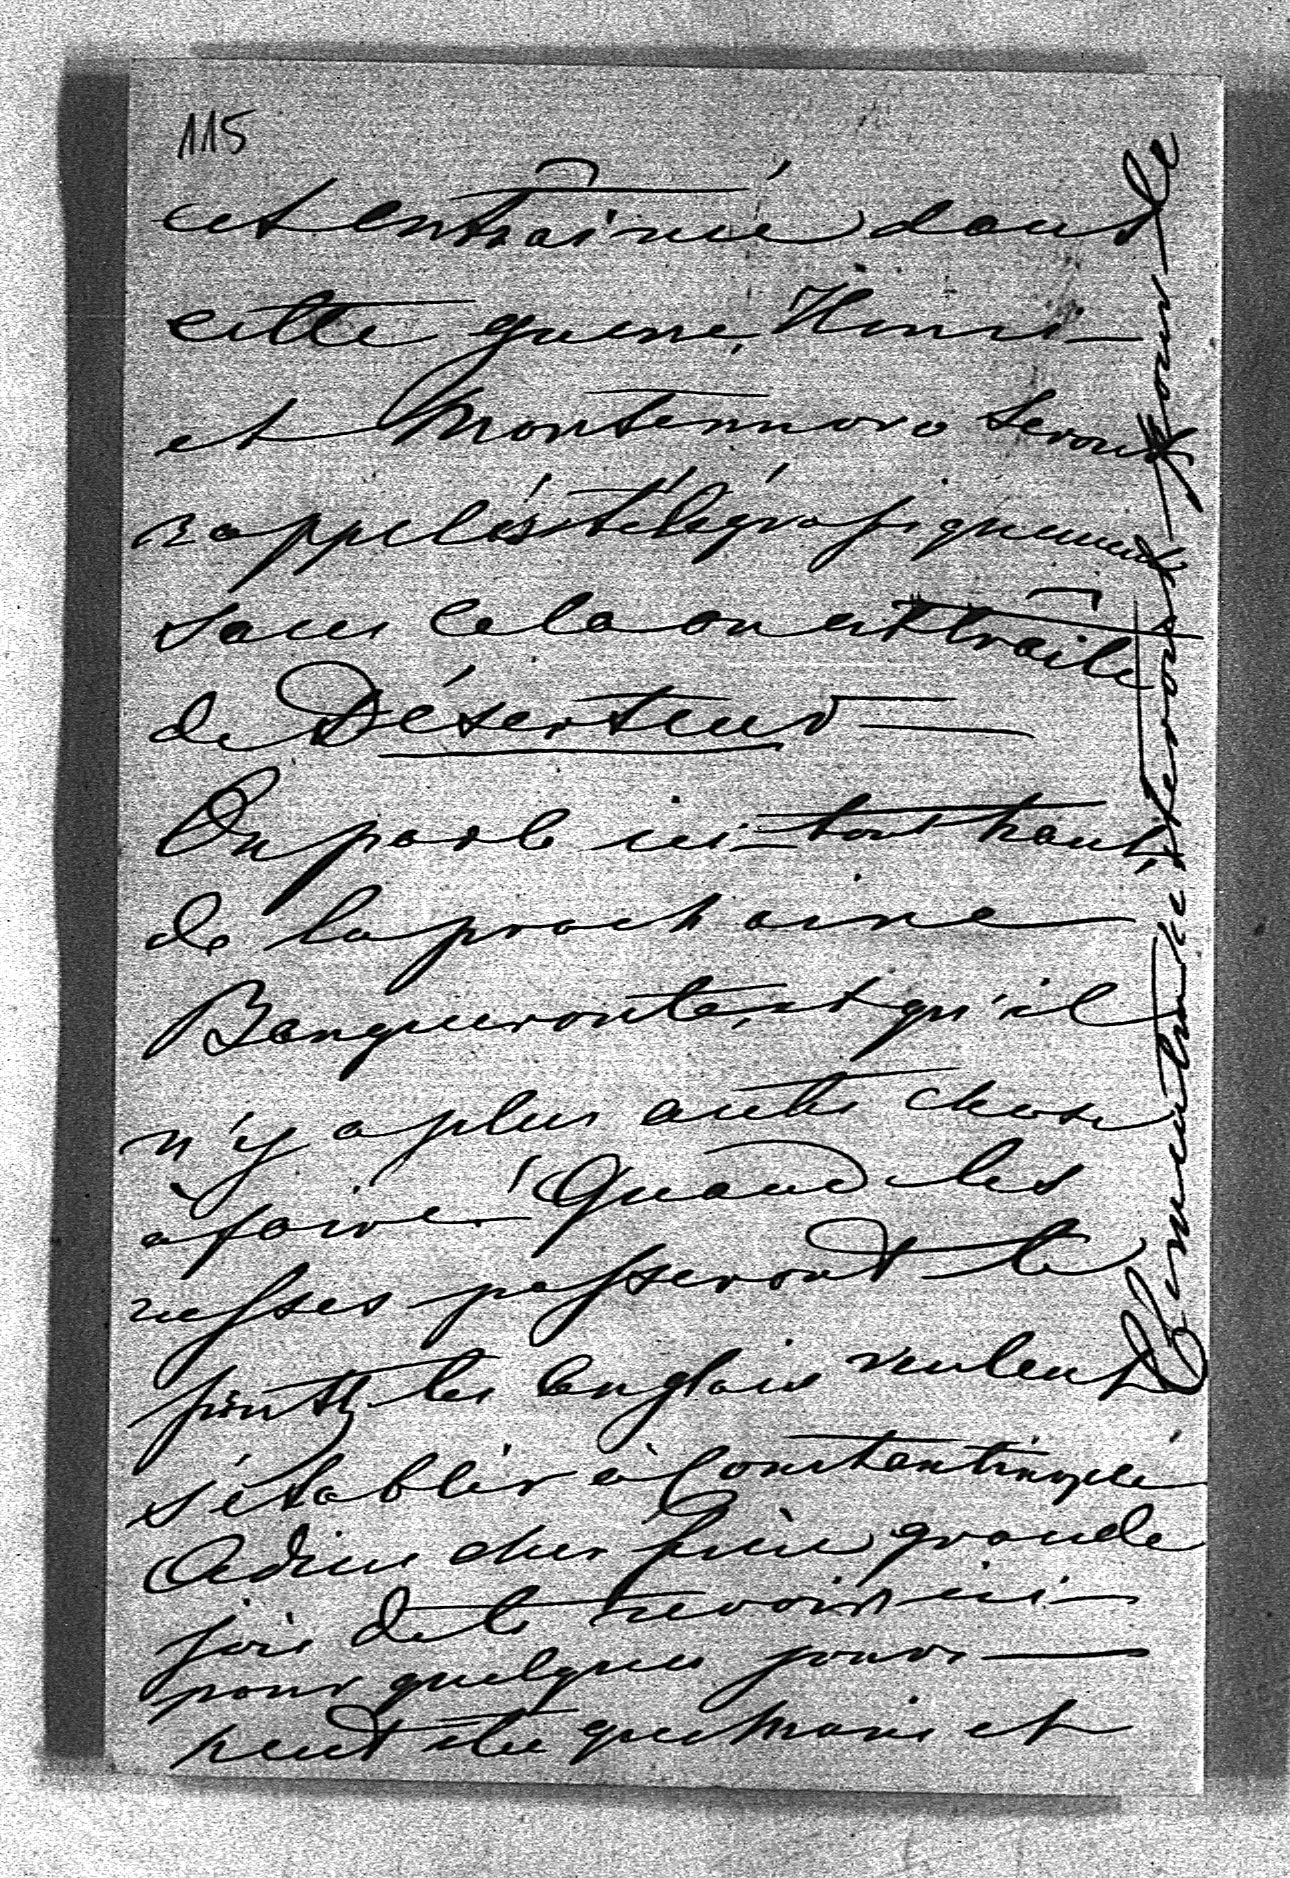 115
est entrainée dans
cette guerre, Henri
et Montenuovo seront
rappelés télégrafiquement
sans cela on est traîté
de Déserteur
On parle ici tout haut,
de la prochaine
Banqueroute, et qu'il
n'y a plus autre chose
à faire! Quand les
russes passeront le
Pruth, les anglais veulent
s'établir à Constantinople
Adieu cher frère grande
joie de te revoir ici
pour quelques jours
peut être que Marie et
Clementine resteront pour le